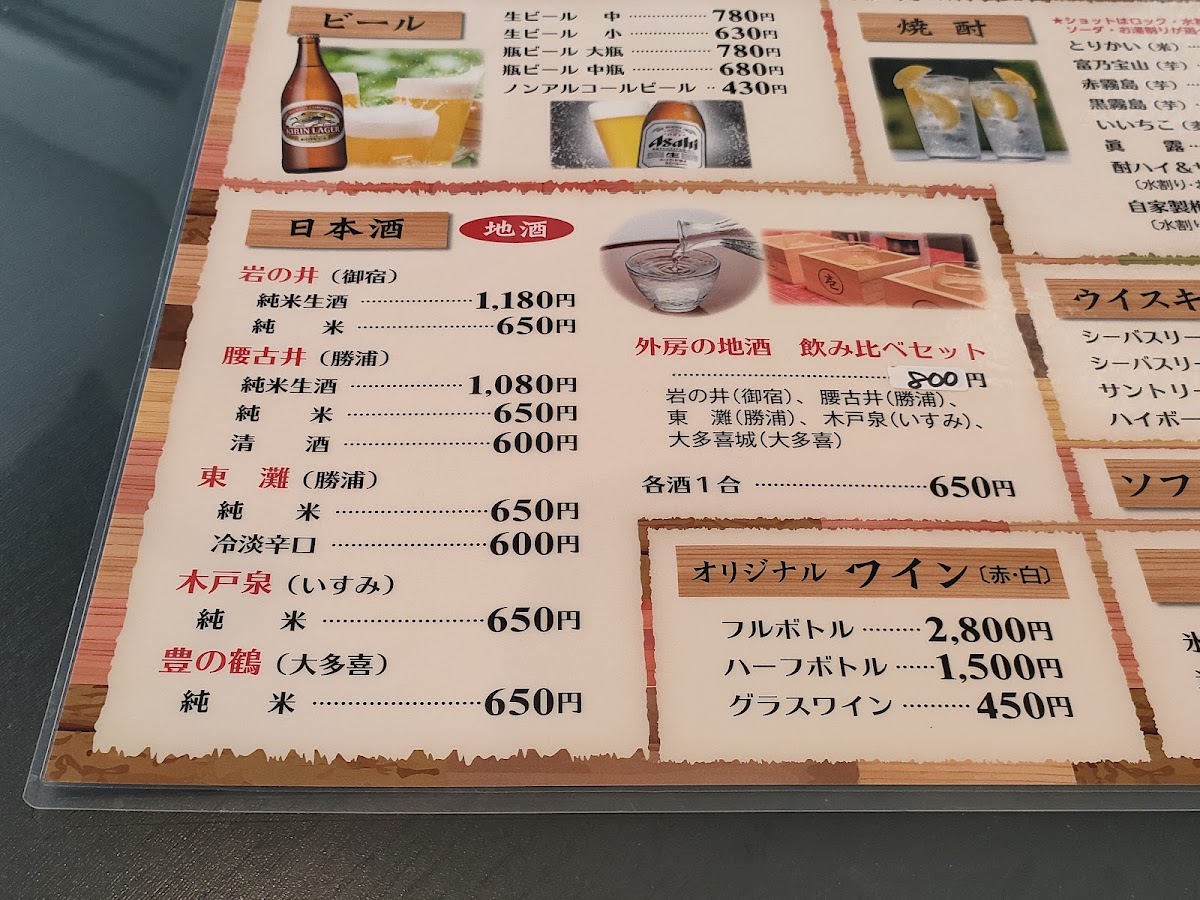 ビール
生ビール 中 ……… 780円
生ビール 小 ……… 630円
瓶ビール 大瓶 ……… 780円
瓶ビール 中瓶 ……… 680円
ノンアルコールビール ‥ 430円
KIRIN LAGER
Asahi
生
焼酎
★ショットはロック・水
ソーダ・お湯割りが選べ
とりかい（米）
富乃宝山（芋）
赤霧島（芋）
黒霧島（芋）
いいちこ
眞露
酎ハイ＆
〔水割り・
自家製梅
〔水割り
日本酒
地酒
岩の井（御宿）
純米生酒 ……… 1,180円
純米 ……… 650円
腰古井（勝浦）
純米生酒 ……… 1,080円
純米 ……… 650円
清酒 ……… 600円
東灘（勝浦）
純米 ……… 650円
冷淡辛口 ……… 600円
木戸泉（いすみ）
純米 ……… 650円
豊の鶴（大多喜）
純米 ……… 650円
壱
外房の地酒 飲み比べセット
……… 800円
岩の井（御宿）、腰古井（勝浦）、
東 灘（勝浦）、木戸泉（いすみ）、
大多喜城（大多喜）
各酒１合 ……… 650円
オリジナル ワイン〔赤・白〕
フルボトル ……… 2,800円
ハーフボトル …… 1,500円
グラスワイン ……… 450円
ウイスキ
シーバスリー
シーバスリー
サントリー
ハイボー
ソフ
氷